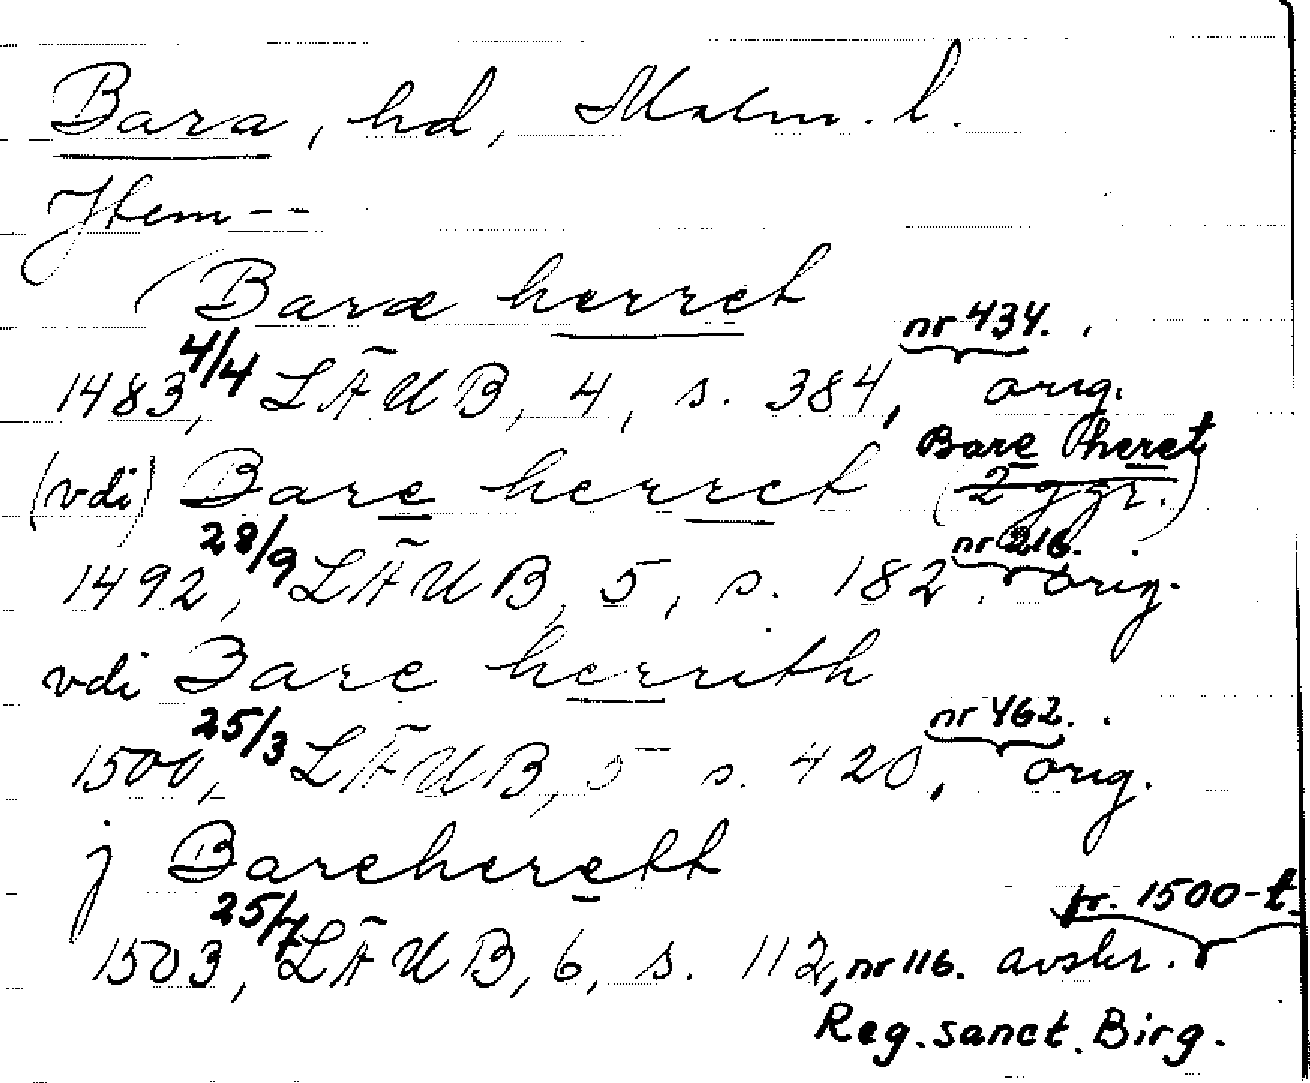 Bara, hd, Malm. l.
Jtem --
(Baræ herret
1483, 4/4 LÄUB, 4, s. 384, nr 434. orig.
(vdi) Bare herret (2 ggr.) Bare Pheret
1492, 28/9 LÄUB, 5, s. 182. nr 216. orig.
vdi Bare herrith
1500, 25/3 LÄUB, 5 s. 420, nr 462. orig.
j Barehereth
1503, 25/7 LÄUB, 6, s. 112, nr 116. avskr. fr. 1500-t.
Reg. sanct. Birg.